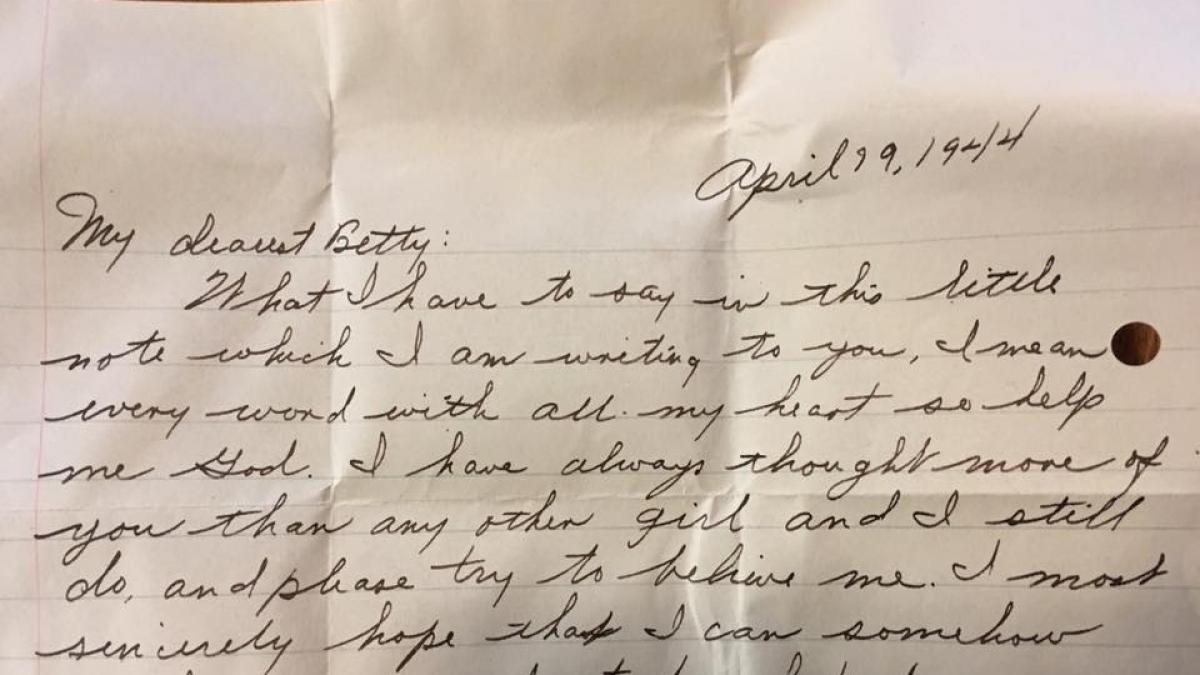 April 29, 1944
My dearest Betty:
What I have to say in this little
note which I am writing to you, I mean
every word with all my heart so help
me God. I have always thought more of
you than any other girl and I still
do, and please try to believe me. I most
sincerely hope that I can somehow